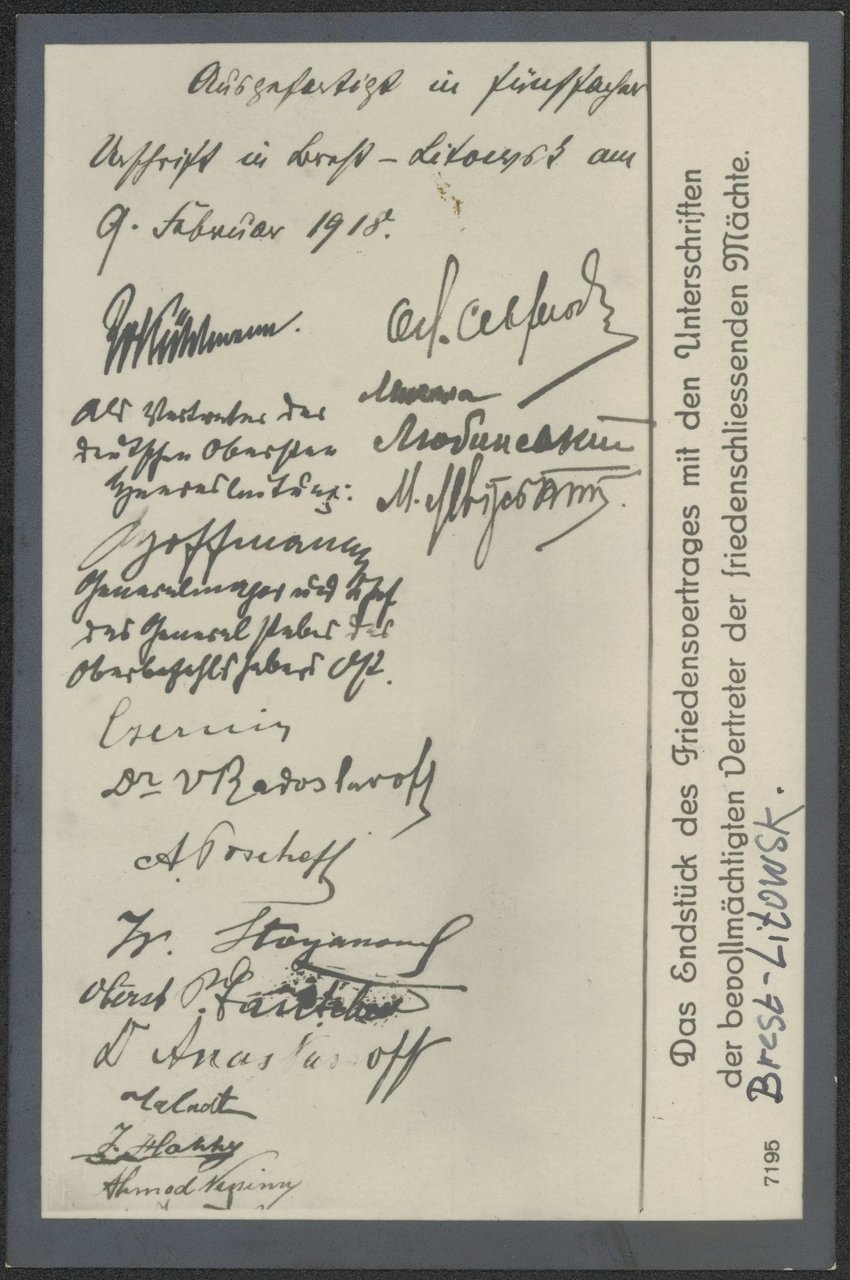 Ausgefertigt in fünffacher
Urschrift in Brest-Litowsk am
9. Februar 1918.
Kühlmann.
als Vertreter der
deutschen Obersten
Heeresleitung:
Hoffmann
Generalmajor und Chef
des Generalstabes des
Oberbefehlshabers Ost.
Czernin
Dr VRadoslawoff
A. Toscheff
Iv. Stoyanowf
Oberst P.
Dr Anastassoff
Talaat
I. Hakky
Ahmed Nessimy
Ол.
Микола
Любинский
М.
Das Endstück des Friedensvertrages mit den Unterschriften
der bevollmächtigten Vertreter der friedenschliessenden Mächte.
Brest-Litowsk.
7195